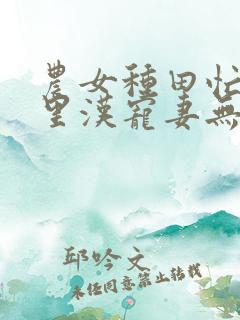 農女種田忙
里漢寵妻無
邱吟文
未經同意禁止轉載